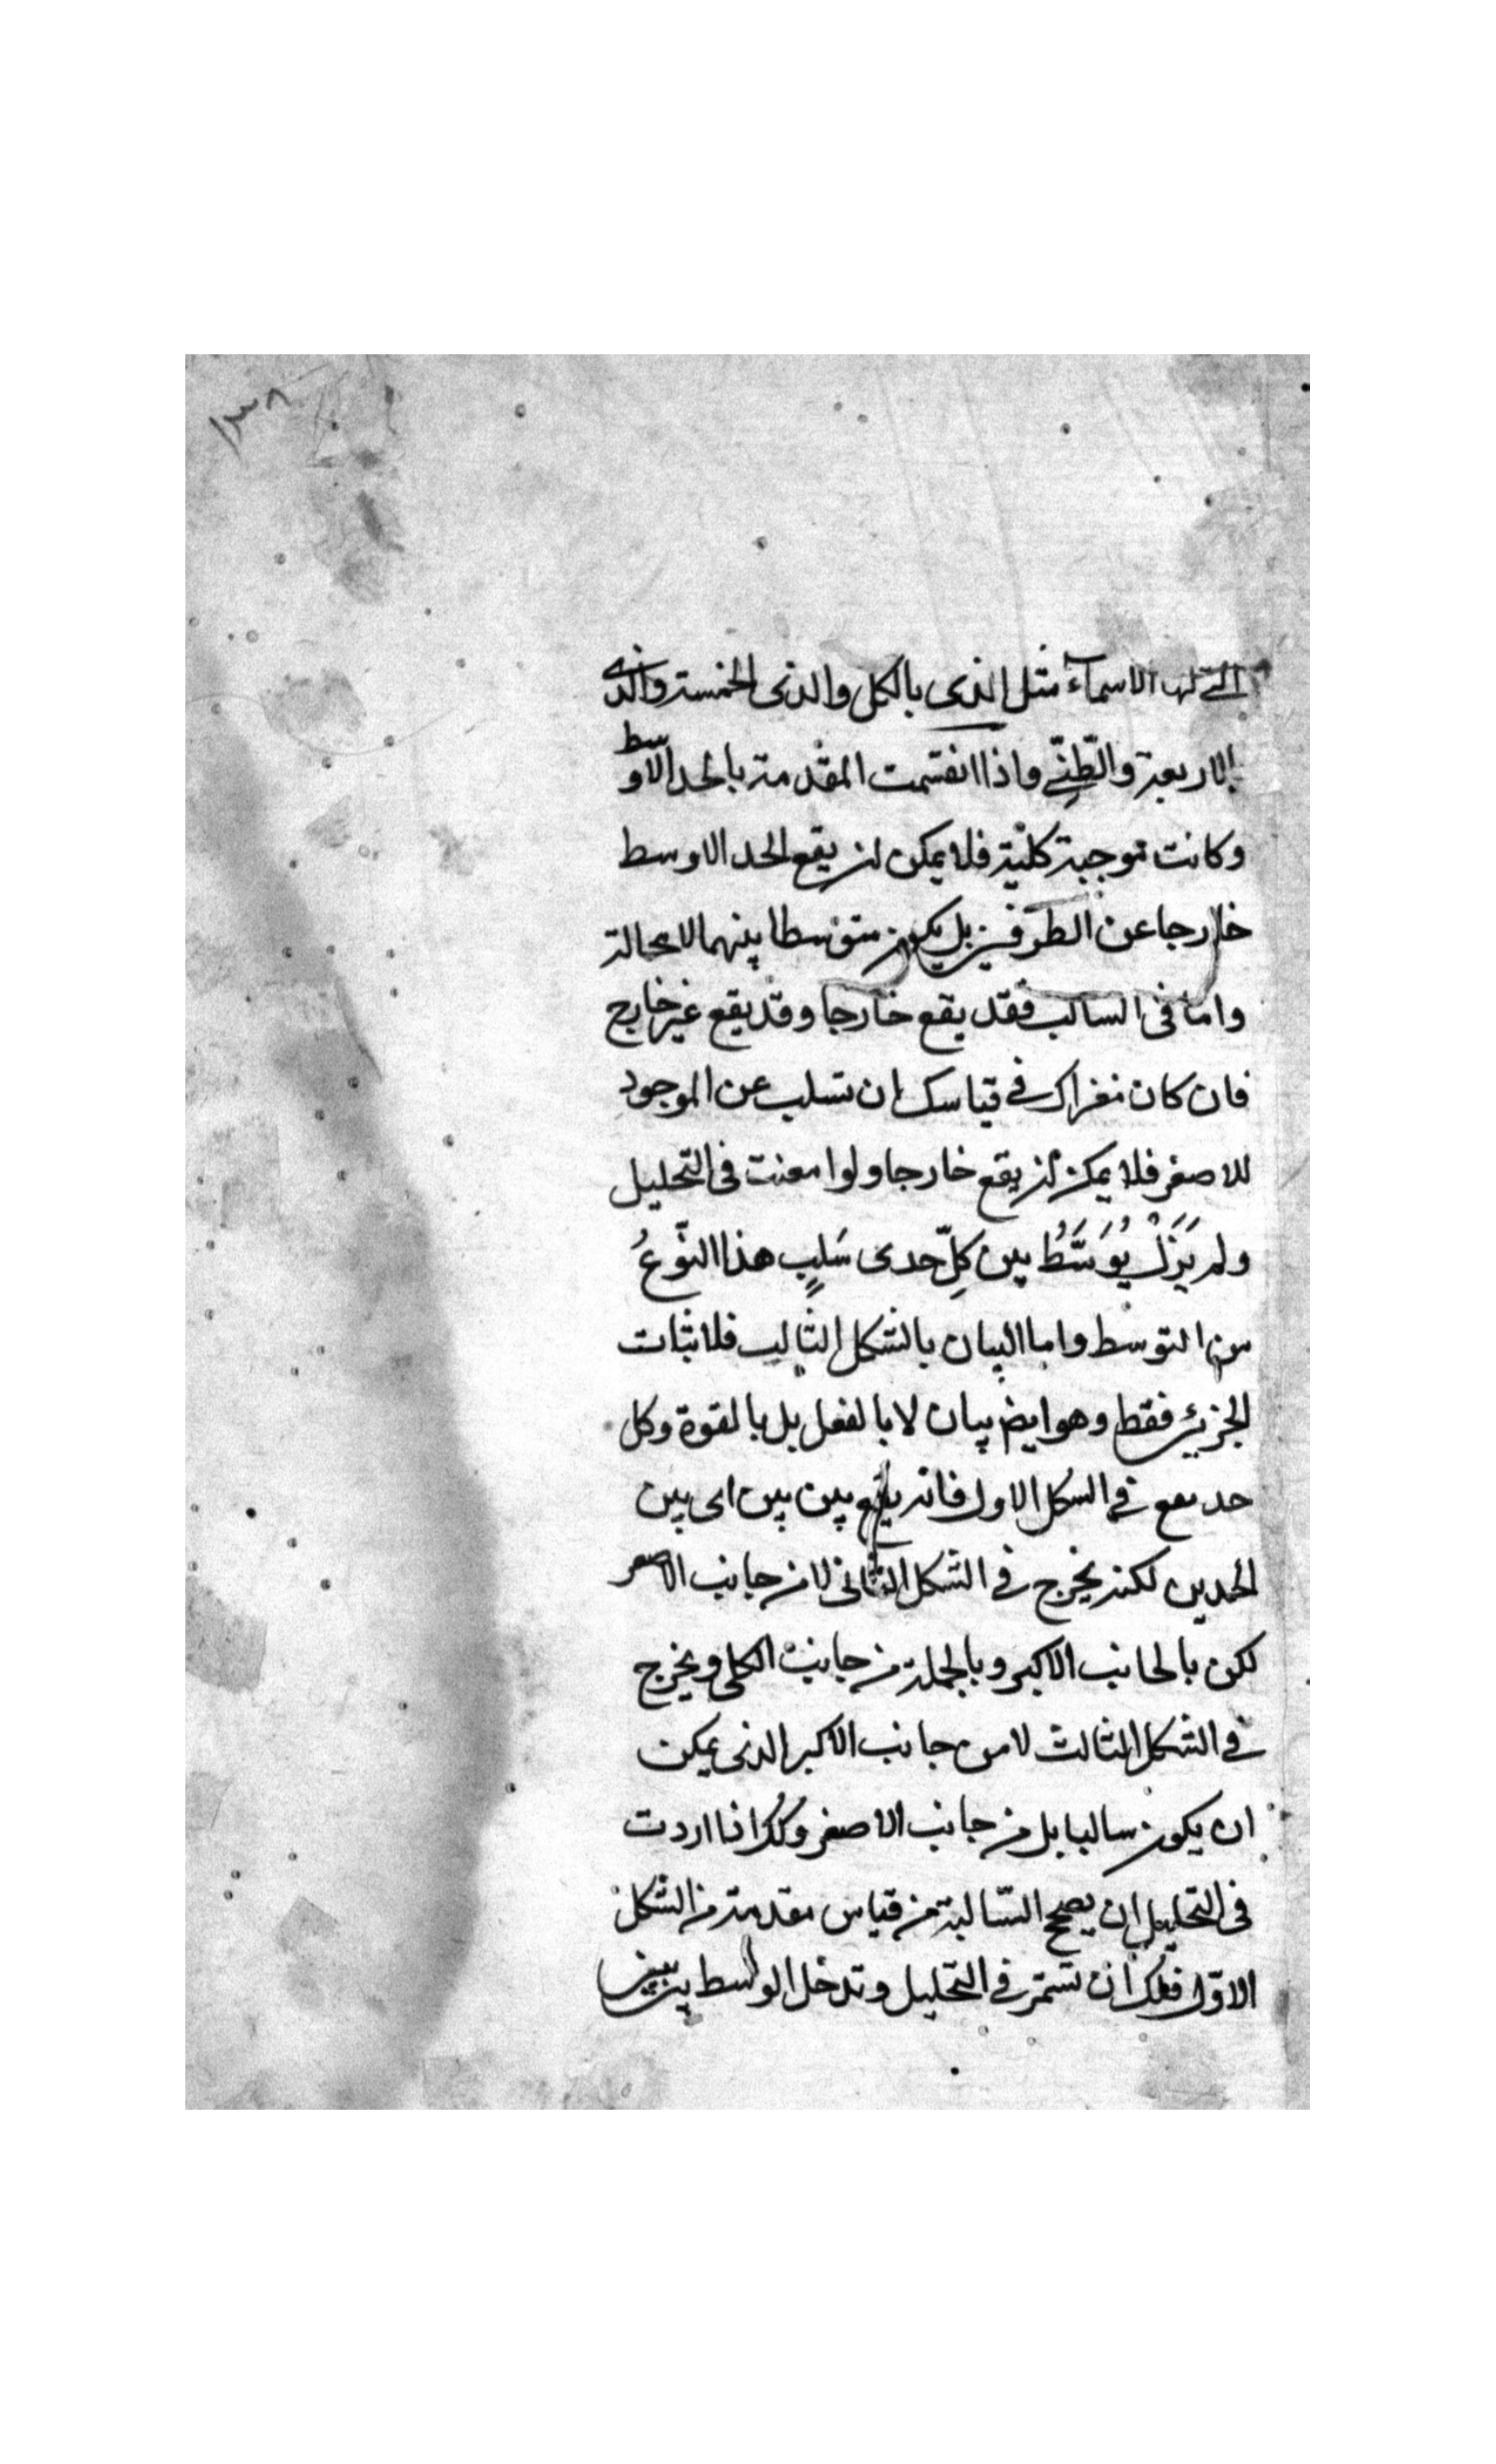 ١٣٨
التي لها الاسماء مثل الذى بالكل والذى الخمسة والذى
الاربعة والطنّى واذا انقسمت المقدمة بالحد الاوسط
وكانت موجبة كلية فلا يمكن ان يقع الحد الاوسط
خارجا عن الطرفين بل يكون متوسطا بينهما لا محالة
واما فى السالب فقد يقع خارجا وقد يقع غير خارج
فان كان فى قياسك ان تسلب عن الموجود
للاصغر فلا يمكن ان يقع خارجا ولو امعنت فى التحليل
ولم يَزَلْ يُوَسَّطُ بين كلِّ حدى سَلبٍ هذا النّوعُ
من التوسط واما البيان بالشكل الثالث فلاثبات
الجزئى فقط وهو ايض بيان لا بالفعل بل بالقوة وكل
حد يقع فى الشكل الاول فانه يقع بين بين اى بين
الحدين لكنه يخرج فى الشكل الثانى لا من جانب الاصغر
لكن بالجانب الاكبر وبالجملة من جانب الكلى ويخرج
فى الشكل الثالث لا من جانب الاكبر الذى يمكن
ان يكون سالبا بل من جانب الاصغر وكذا اذا اردت
فى التحليل ان يصحح السّالبة من قياس مقدمته من الشكل
الاوّل فلك ان تستمر فى التحليل وتدخل الوسط بين